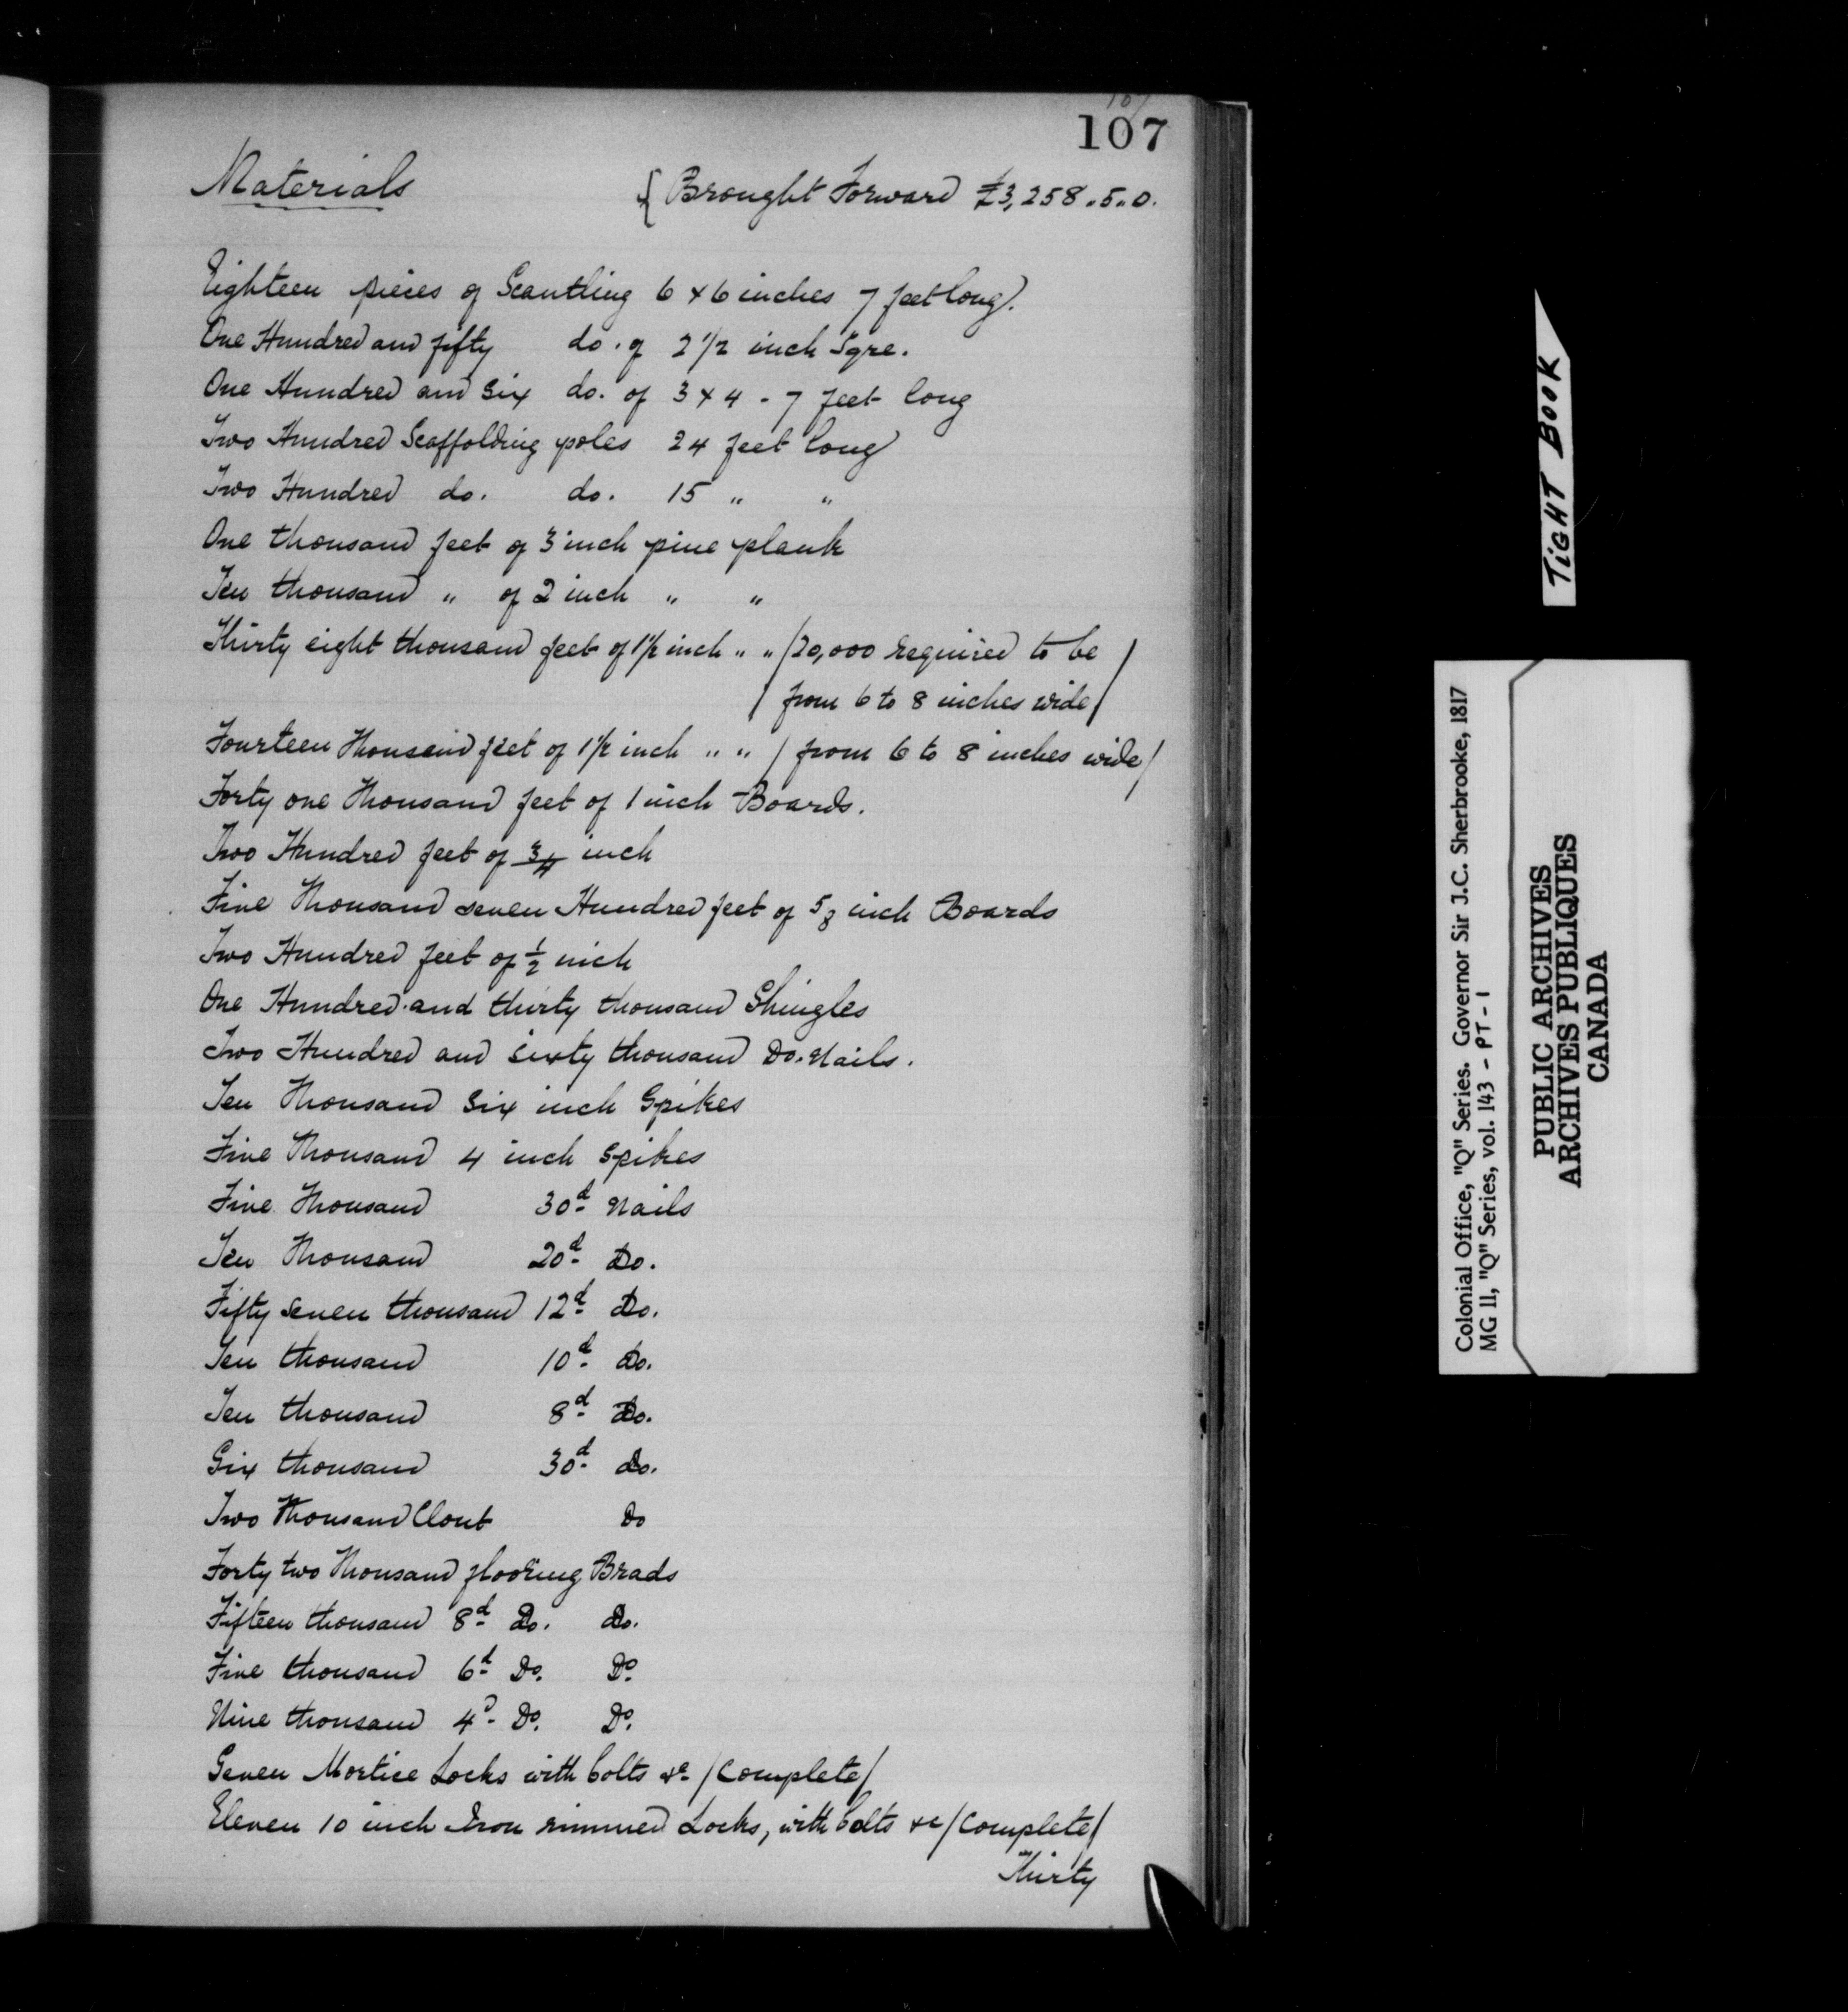 107
107
Materials { Brought Forward £3,258.5.0.
Eighteen pieces of Scantling 6 x 6 inches 7 feet long.
One Hundred and fifty do. of 2 1/2 inch Sqre.
One Hundred and Six do. of 3 x 4 - 7 feet long
Two Hundred Scaffolding poles 24 feet long
Two Hundred do. do. 15 " "
One thousand feet of 3 inch pine plank
Ten thousand " of 2 inch " "
Thirty eight thousand feet of 1 1/2 inch " " / 20,000 required to be
/ from 6 to 8 inches wide /
Fourteen Thousand feet of 1 1/2 inch " " / from 6 to 8 inches wide /
Forty one Thousand feet of 1 inch Boards.
Two Hundred feet of 3/4 inch
Five Thousand seven Hundred feet of 5/8 inch Boards
Two Hundred feet of 1/2 inch
One Hundred and thirty thousand Shingles
Two Hundred and sixty thousand Do. Nails.
Ten Thousand Six inch Spikes
Five Thousand 4 inch Spikes
Five Thousand 30d Nails
Ten Thousand 20d Do.
Fifty seven thousand 12d Do.
Ten thousand 10d do.
Ten thousand 8d Do.
Six thousand 30d do.
Two Thousand Clout Do
Forty two Thousand flooring Brads
Fifteen thousand 8d Do. do.
Five thousand 6d Do. Do.
Nine thousand 4D Do. Do.
Seven Mortice Locks with bolts &c / Complete /
Eleven 10 inch Iron rimmed Locks, with bolts &c / Complete /
Thirty
TIGHT BOOK
Colonial Office, "Q" Series. Governor Sir J.C. Sherbrooke, 1817
MG 11, "Q" Series, vol. 143 - PT - 1
PUBLIC ARCHIVES
ARCHIVES PUBLIQUES
CANADA